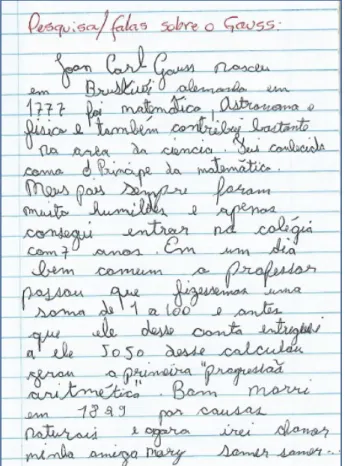 Pesquisa/falas sobre o Gauss:
Joan Carl Gauss nasceu
em alemanda em
1777 foi matemático, Astronomo e
fisico e também contribuj bastante
na area da ciencia. Seu conhecido
como o Principe da matemático.
Meus pais sempre foram
muito humildes e apenas
consegui entrar no colégio
com 7 anos. Em um dia
bem comum o professor
passou que fizessemos uma
soma de 1 a 100 e antes
que ele desse conta entreguei
a ele 5050 desse calculou
gerou a primeira "progressão
aritmético". Bom morri
em 1829 por causas
naturais e agora irei
minha amiga Mary